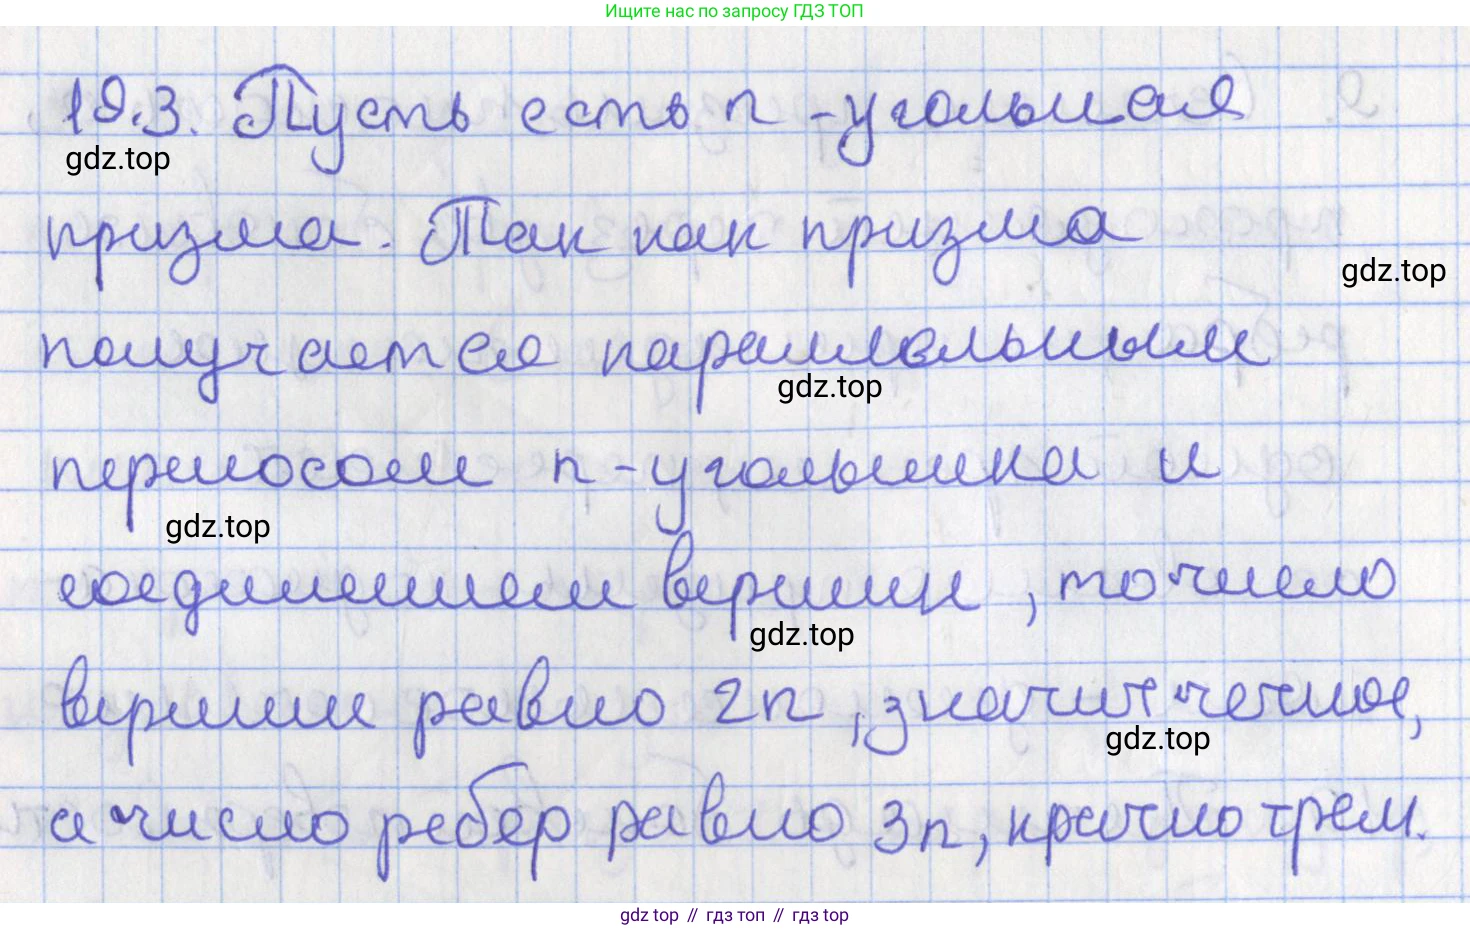 Ищите нас по запросу ГДЗ ТОП
19.3. Пусть есть n-угольная
gdz.top
призма. Так как призма
gdz.top
получается параллельным
gdz.top
переносом n-угольника и
gdz.top
соединением вершин, то число
gdz.top
вершин равно 2n, значит четное,
gdz.top
а число ребер равно 3n, кратно трем.
gdz top // гдз топ // gdz top